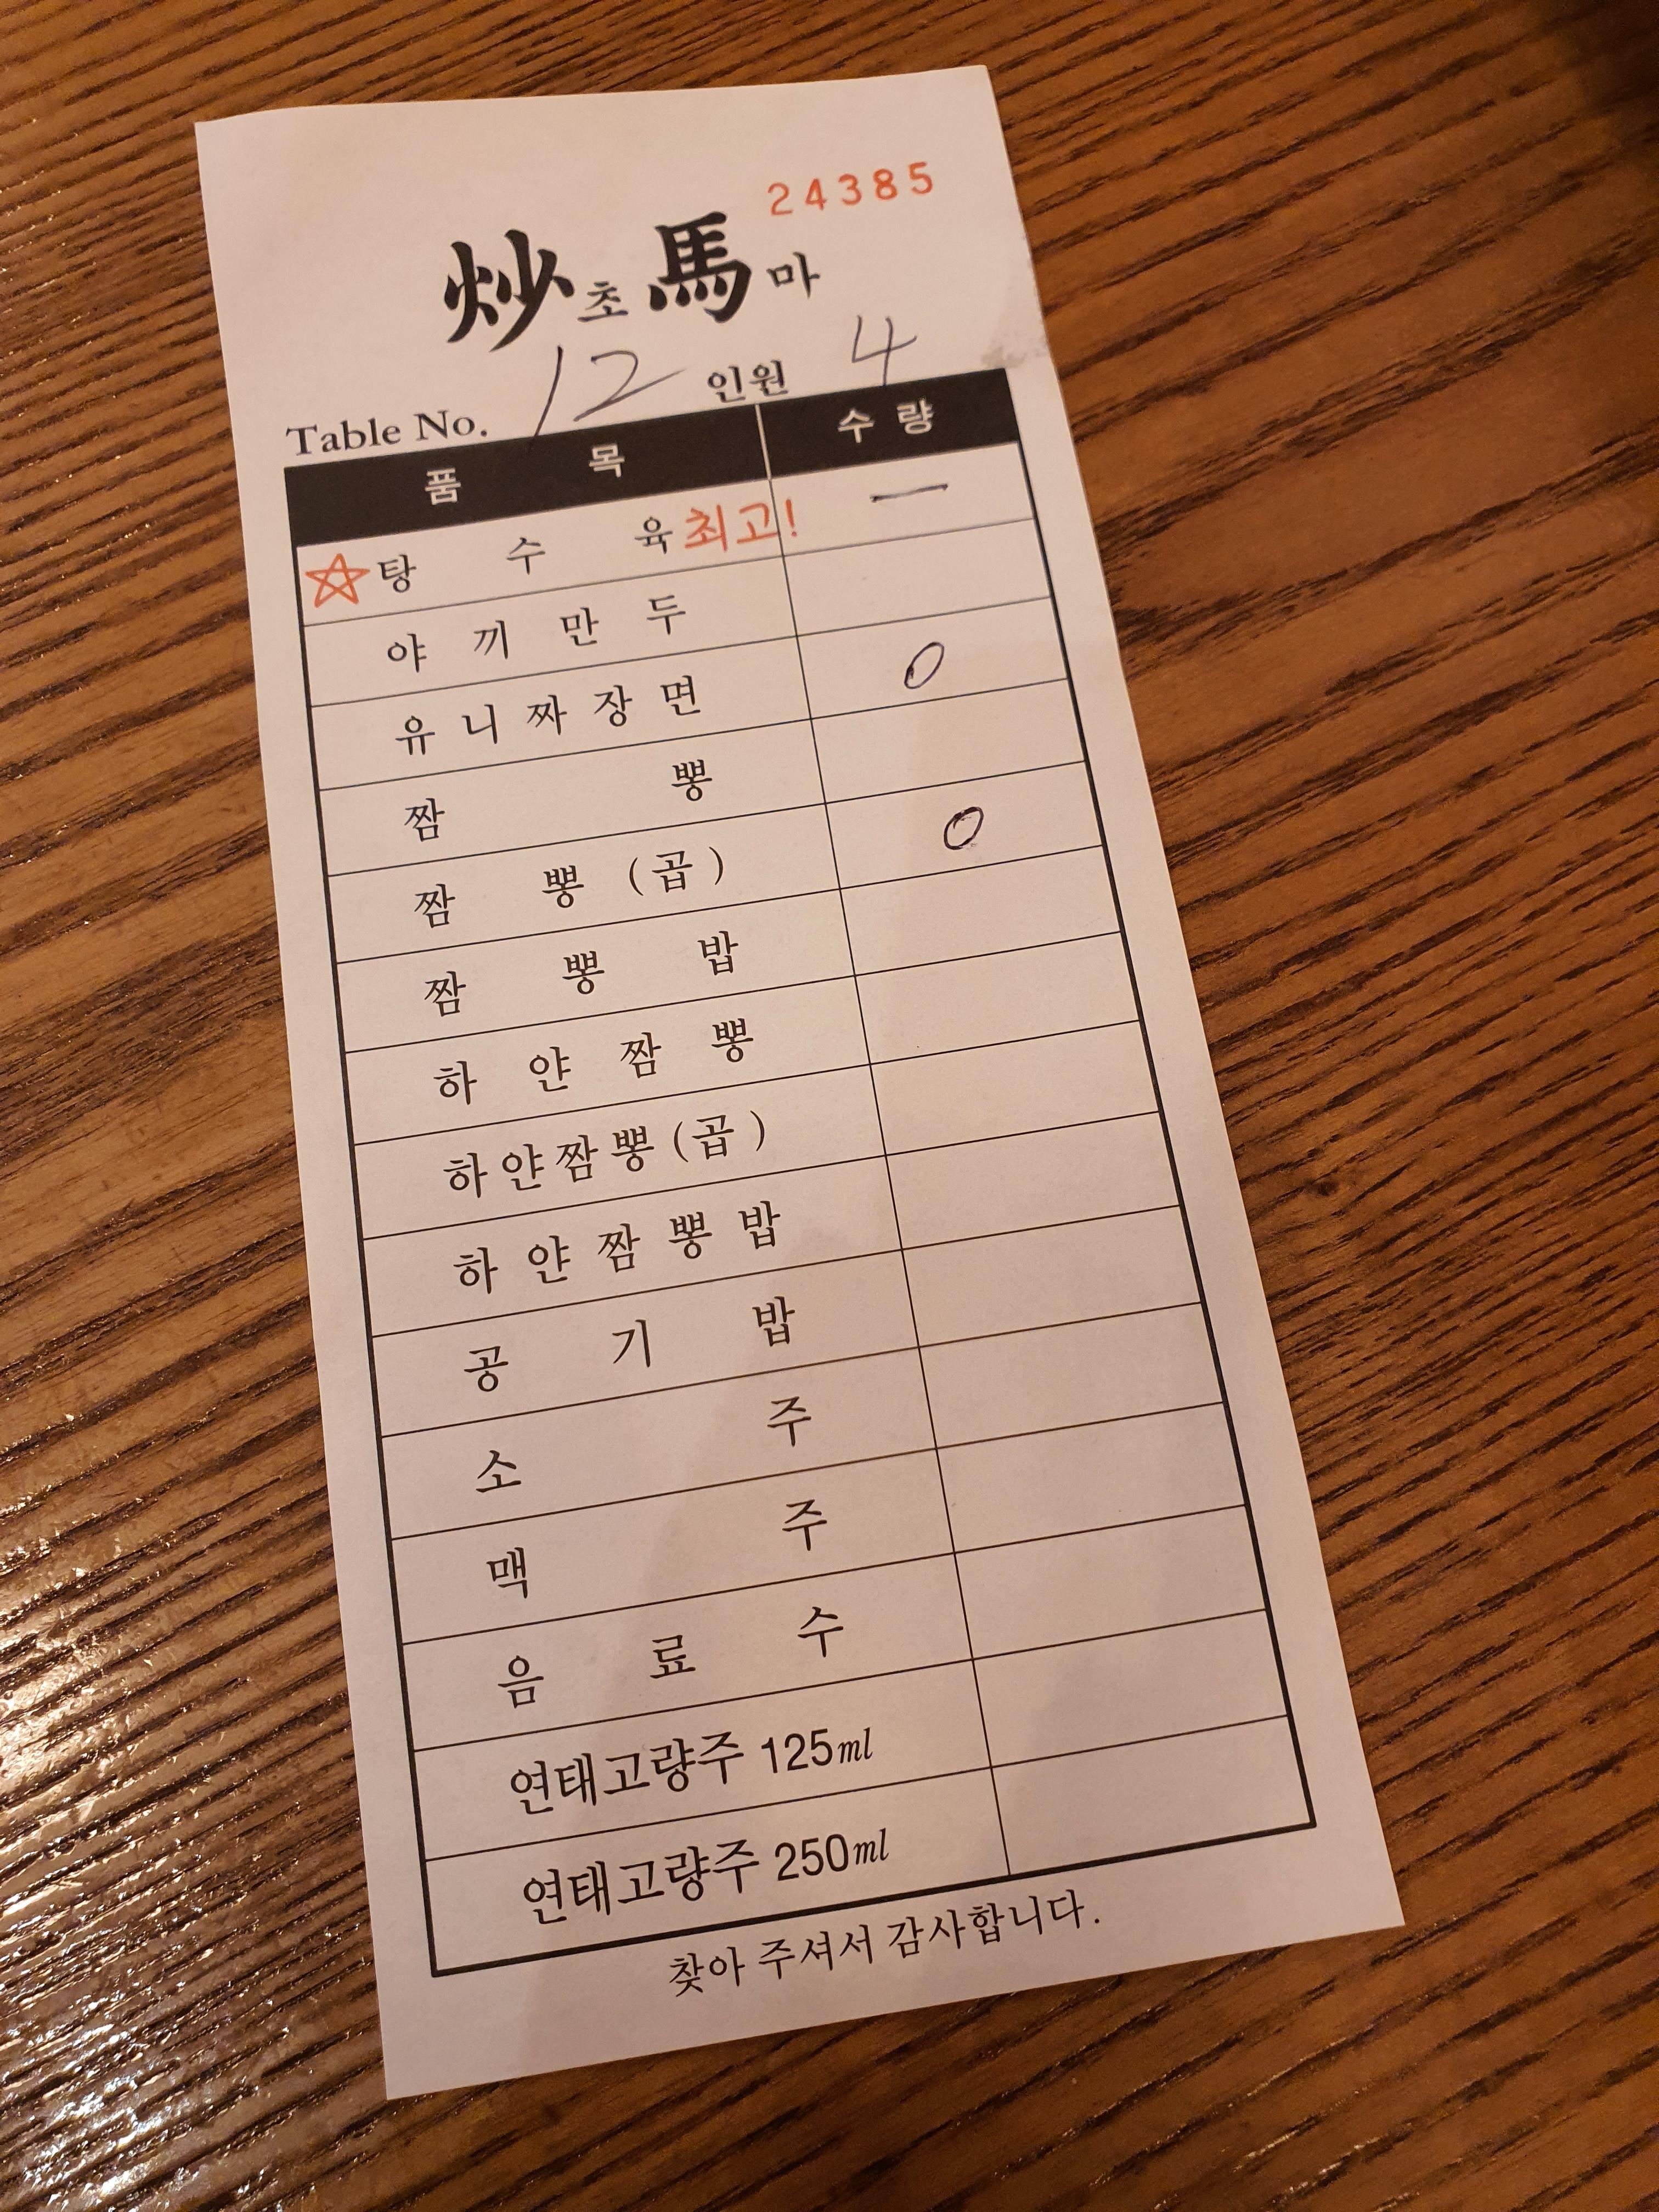 24385
炒초馬마
Table No. 12 인원 4
품목 수량
☆탕수육 최고! 一
야끼만두
유니짜장면 0
짬뽕
짬뽕(곱) 0
짬뽕밥
하얀짬뽕
하얀짬뽕(곱)
하얀짬뽕밥
공기밥
소주
맥주
음료수
연태고량주 125ml
연태고량주 250ml
찾아 주셔서 감사합니다.